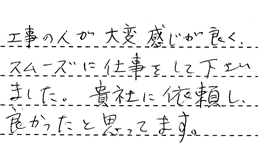 工事の人が大変感じが良く、
スムーズに仕事をして下さい
ました。貴社に依頼し、
良かったと思ってます。